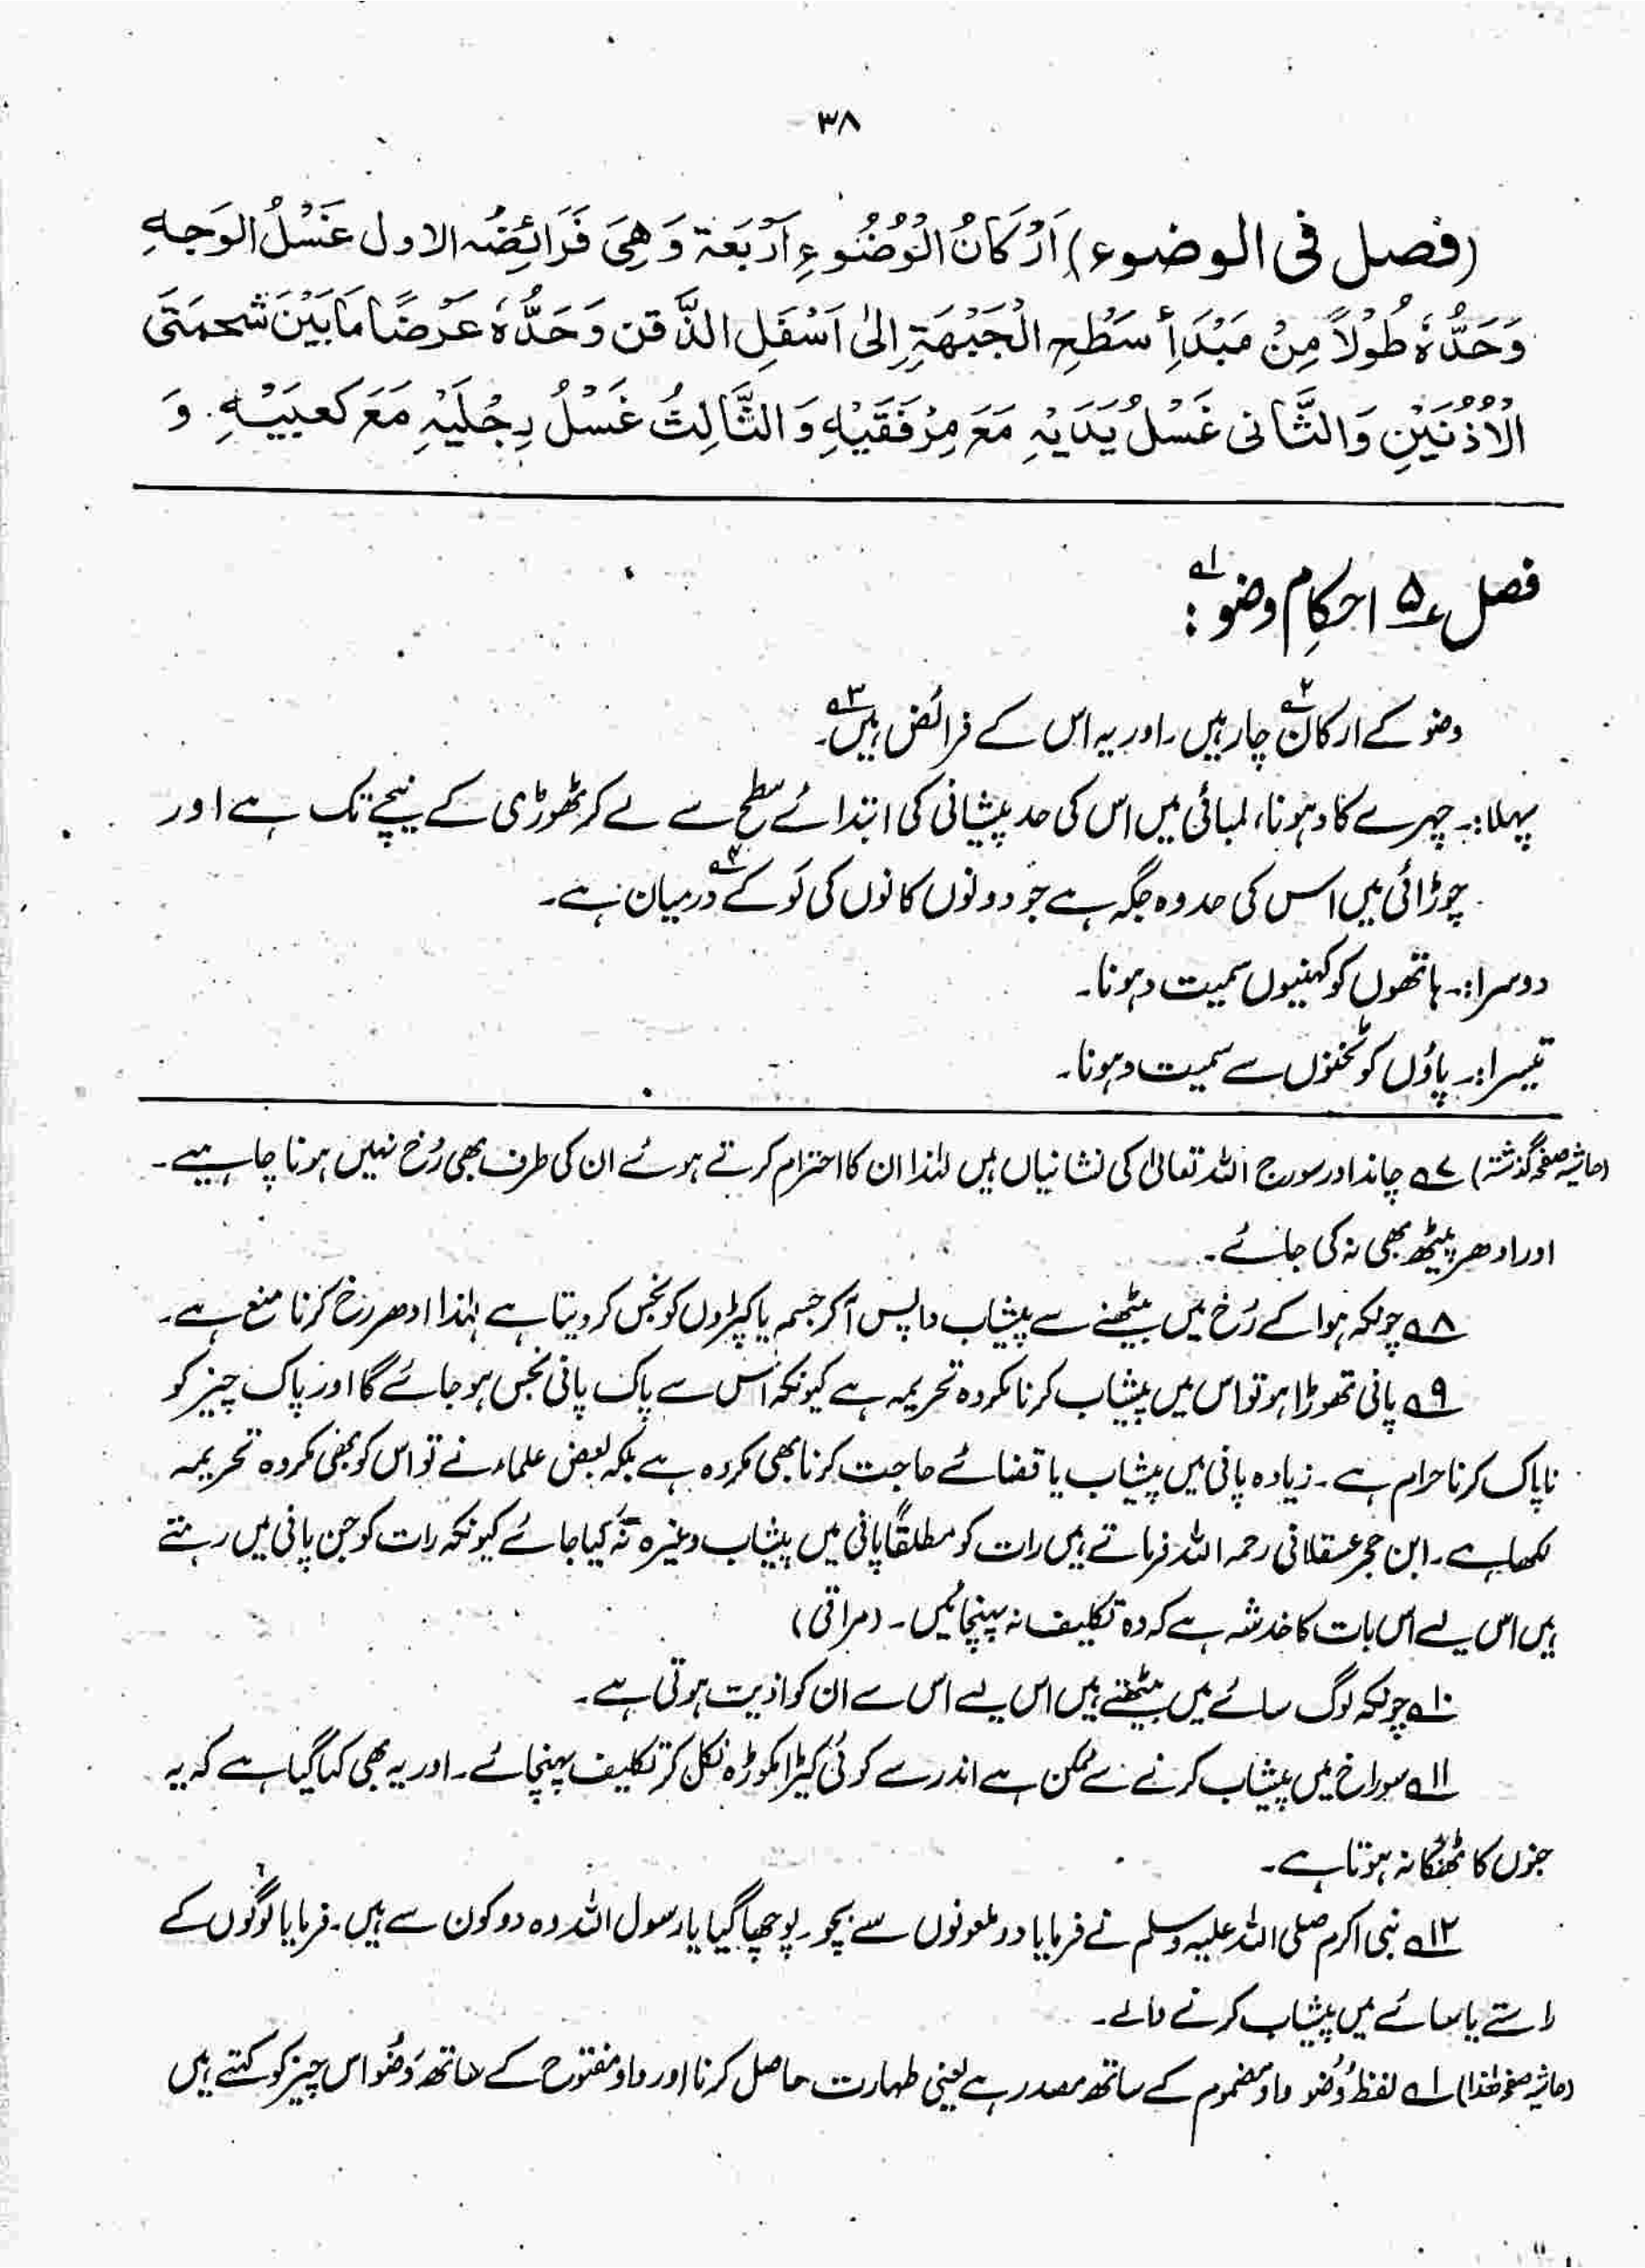 ٣٨
(فصل فى الوضوء) اَرْكَانُ الْوُضُوءِ اَرْبَعَة وَهِىَ فَرَائِضُه الاول غَسْلُ الوَجهِ
وَحَدُّهٗ طُوْلاً مِنْ مَبْدَأِ سَطْحِ الْجَبْهَةِ اِلىٰ اَسْفَلِ الذَّقن وَحَدُّهٗ عَرْضًا مَا بَيْنَ شحمَتَى
الْاُذُنَيْنِ وَالثَّانى غَسْلُ يَدَيْهِ مَعَ مِرْفَقَيْهِ وَالثَّالِثُ غَسْلُ رِجْلَيْهِ مَعَ كَعبَيْهِ. وَ
فصل ۵ احکامِ وضو ۱؎ :
وضو کے ارکان ۲؎ چار ہیں۔ اور یہ اس کے فرائض ہیں ۳؎۔
پہلا:۔ چہرے کا دہونا، لمبائی میں اس کی حد پیشانی کی ابتدائے سطح سے لے کر ٹھوڑی کے نیچے تک ہے اور
چوڑائی میں اس کی حد وہ جگہ ہے جو دونوں کانوں کی لَو کے ۴؎ درمیان ہے۔
دوسرا:۔ ہاتھوں کو کہنیوں سمیت دہونا۔
تیسرا:۔ پاؤں کو ٹخنوں سے سمیت دہونا۔
(حاشیہ صفحہ گذشتہ) ۷؎ چاند اور سورج اللہ تعالیٰ کی نشانیاں ہیں لہٰذا ان کا احترام کرتے ہوئے ان کی طرف بھی رُخ نہیں ہونا چاہیے۔
اور ادھر پیٹھ بھی نہ کی جائے۔
۸؎ چونکہ ہوا کے رُخ میں بیٹھنے سے پیشاب واپس آکر جسم یا کپڑوں کو نجس کر دیتا ہے لہٰذا ادھر رخ کرنا منع ہے۔
۹؎ پانی تھوڑا ہو تو اس میں پیشاب کرنا مکروہ تحریمہ ہے کیونکہ اس سے پاک پانی نجس ہو جائے گا اور پاک چیز کو
ناپاک کرنا حرام ہے۔ زیادہ پانی میں پیشاب یا قضائے حاجت کرنا بھی مکروہ ہے بلکہ بعض علماء نے تو اس کو بھی مکروہ تحریمہ
لکھا ہے۔ ابن حجر عسقلانی رحمہ اللہ فرماتے ہیں رات کو مطلقاً پانی میں پیشاب وغیرہ نہ کیا جائے کیونکہ رات کو جن پانی میں رہتے
ہیں اس لیے اس بات کا خدشہ ہے کہ وہ تکلیف نہ پہنچائیں۔ (مراقی)
۱۰؎ چونکہ لوگ سائے میں بیٹھتے ہیں اس لیے اس سے ان کو اذیت ہوتی ہے۔
۱۱؎ سوراخ میں پیشاب کرنے سے ممکن ہے اندر سے کوئی کیڑا مکوڑہ نکل کر تکلیف پہنچائے۔ اور یہ بھی کہا گیا ہے کہ یہ
جنوں کا ٹھکانہ ہوتا ہے۔
۱۲؎ نبی اکرم صلی اللہ علیہ وسلم نے فرمایا دو ملعونوں سے بچو۔ پوچھا گیا یا رسول اللہ وہ دو کون سے ہیں۔ فرمایا لوگوں کے
راستے یا سائے میں پیشاب کرنے والے۔
(حاشیہ صفحہ ھٰذا) ۱؎ لفظ وُضُو واو مضموم کے ساتھ مصدر ہے یعنی طہارت حاصل کرنا اور واو مفتوح کے ساتھ وَضُو اس چیز کو کہتے ہیں